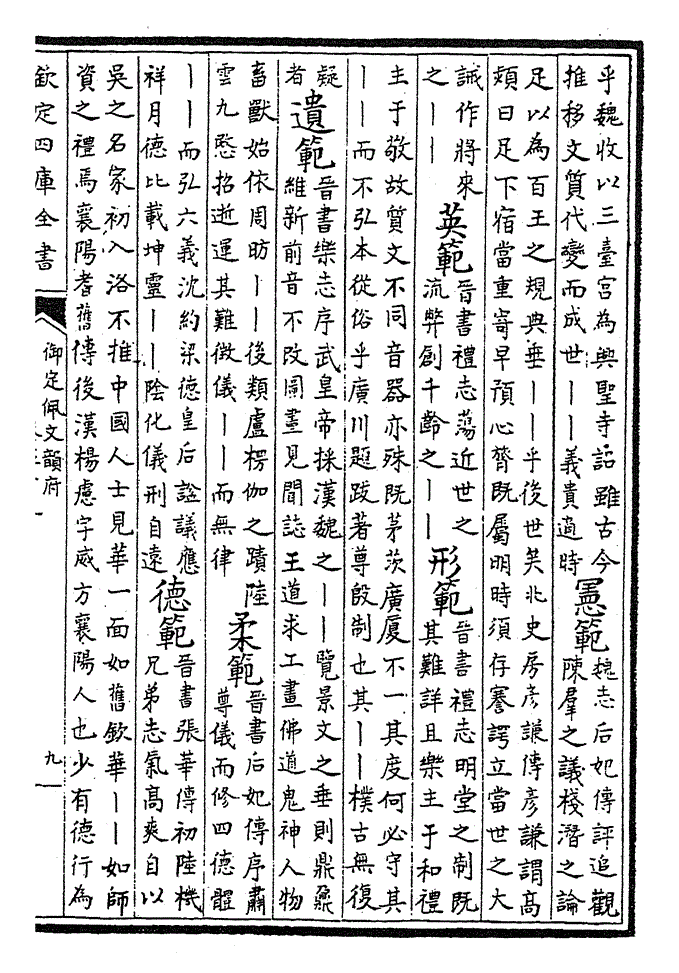 乎魏收以三臺宮為興聖寺詔雖古今
推移文質代變而成世丨丨義貴適時
憲範
魏志后妃傳評追觀
陳羣之議棧潛之論
足以為百王之規典垂丨丨乎後世矣北史房彥謙傳彥謙謂高
熲曰足下宿當重寄早預心膂既屬明時須存謇諤立當世之大
誡作將來
之丨丨
英範
晉書禮志蕩近世之
流弊創千齡之丨丨
形範
晉書禮志明堂之制既
其難詳且樂主于和禮
主于敬故質文不同音器亦殊既茅茨廣厦不一其度何必守其
丨丨而不弘本從俗乎廣川題跋著尊殷制也其丨丨樸古無復
疑
者
遺範
晉書樂志序武皇帝採漢魏之丨丨覽景文之垂則鼎鼐
維新前音不改圖畫見聞誌王道求工畫佛道鬼神人物
畜獸始依周昉丨丨後類盧楞伽之蹟陸
雲九愍招逝運其難徵儀丨丨而無律
柔範
晉書后妃傳序肅
尊儀而修四德體
丨丨而弘六義沈約梁德皇后謚議應
祥月德比載坤靈丨丨陰化儀刑自遠
德範
晉書張華傳初陸機
兄弟志氣高爽自以
吳之名家初入洛不推中國人士見華一面如舊欽華丨丨如師
資之禮焉襄陽耆舊傳後漢楊慮字威方襄陽人也少有德行為
欽定四庫全書
御定佩文韻府
九